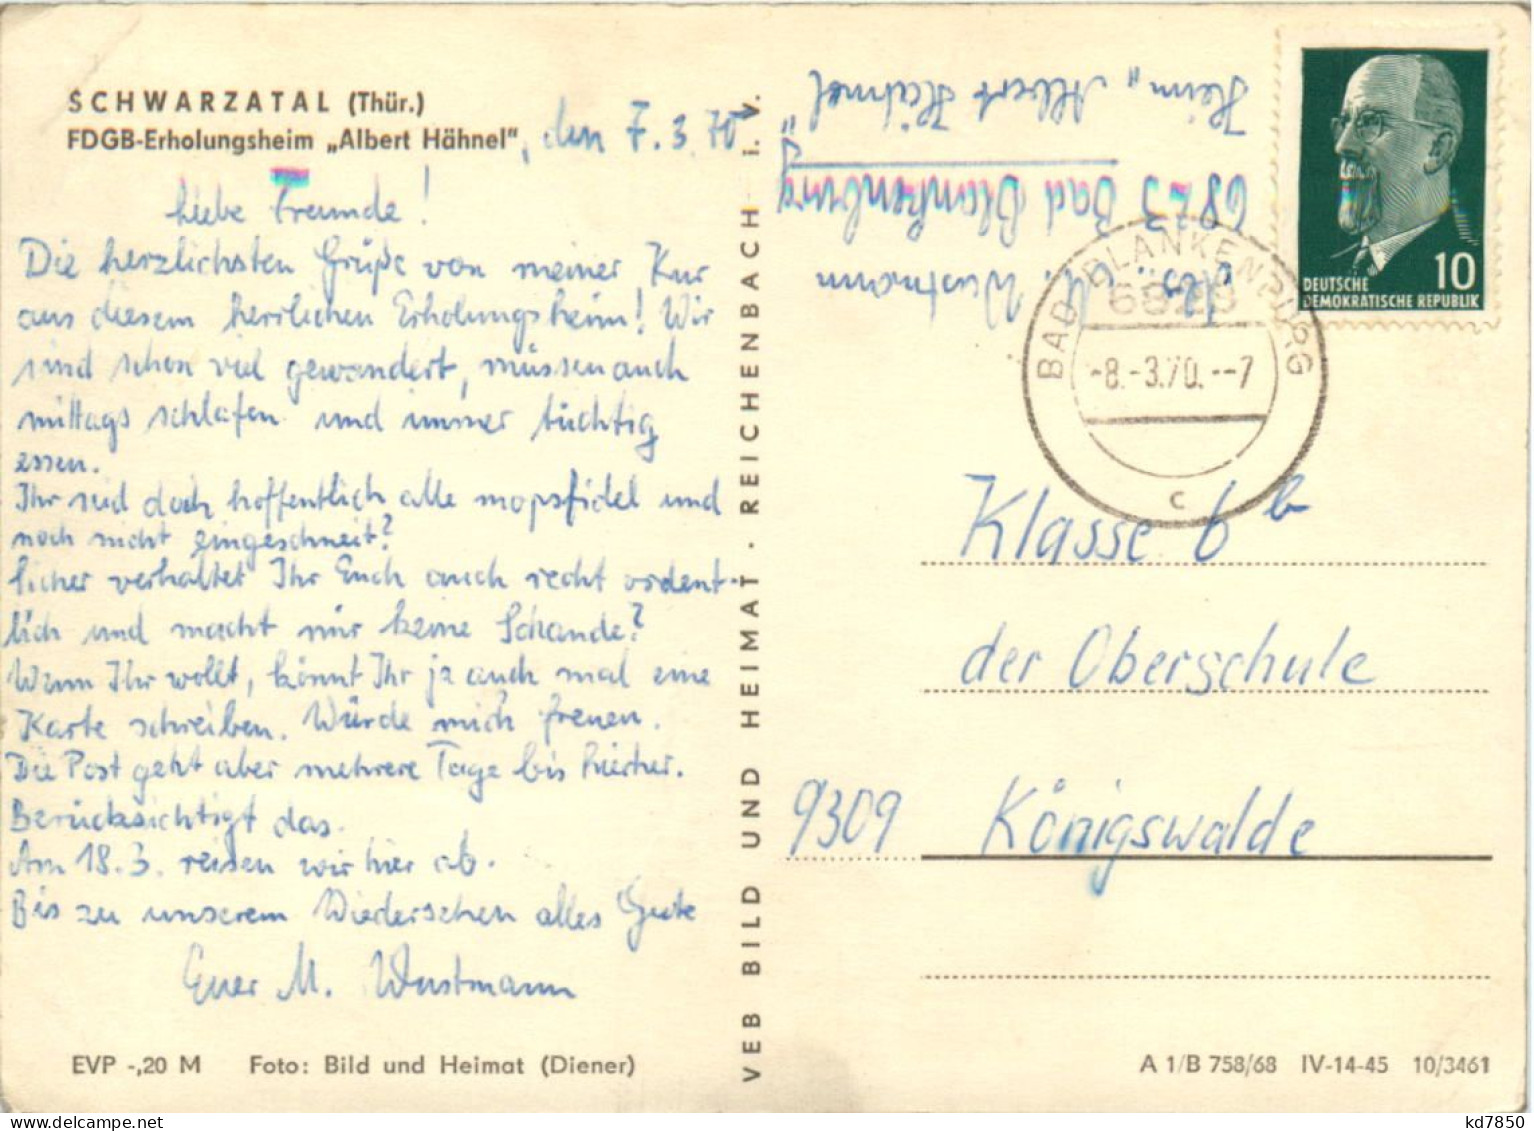 SCHWARZATAL (Thür.)
FDGB-Erholungsheim „Albert Hähnel", den 7.3.70
Liebe Freunde!
Die herzlichsten Grüße von meiner Kur
aus diesem herrlichen Erholungsheim! Wir
sind schon viel gewandert, müssen auch
mittags schlafen und immer tüchtig
essen.
Ihr seid doch hoffentlich alle mopsfidel und
noch nicht eingeschneit?
Sicher verhaltet Ihr Euch auch recht ordent-
lich und macht mir keine Schande?
Wenn Ihr wollt, könnt Ihr ja auch mal eine
Karte schreiben. Würde mich freuen.
Die Post geht aber mehrere Tage bis hierher.
Berücksichtigt das.
Am 18.3. reisen wir hier ab.
Bis zu unserem Wiedersehen alles Gute
Euer M. Wustmann
EVP -,20 M Foto: Bild und Heimat (Diener)
VEB BILD UND HEIMAT · REICHENBACH i. V.
Abs.: M. Wustmann
6823 Bad Blankenburg
Heim „Albert Hähnel"
DEUTSCHE
DEMOKRATISCHE REPUBLIK
10
BAD BLANKENBURG
6823
-8.-3.70.--7
c
Klasse 6b
der Oberschule
9309 Königswalde
A 1/B 758/68 IV-14-45 10/3461
kd7850